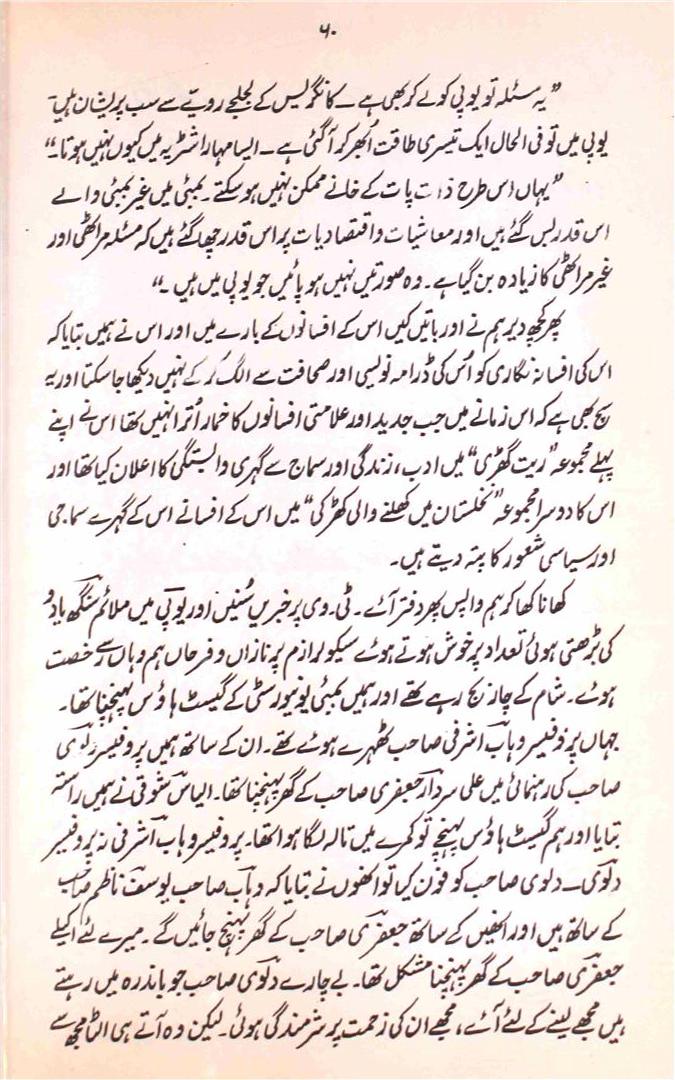 ۶۰
”یہ مسئلہ تو یوپی کو لے کر بھی ہے۔ کانگریس کے لجلجے رویے سے سب پریشان ہیں۔
یوپی میں تو فی الحال ایک تیسری طاقت اُبھر کر آگئی ہے۔ ایسا مہاراشٹر یہ میں کیوں نہیں ہوتا۔“
”یہاں اس طرح ذات پات کے خانے ممکن نہیں ہو سکتے۔ بمبئی میں غیر بمبئی والے
اس قدر بس گئے ہیں اور معاشیات و اقتصادیات پر اس قدر چھا گئے ہیں کہ مسئلہ مراٹھی اور
غیر مراٹھی کا زیادہ بن گیا ہے۔ وہ صورتیں نہیں ہو پائیں جو یوپی میں ہیں۔“
پھر کچھ دیر ہم نے اور باتیں کیں اس کے افسانوں کے بارے میں اور اس نے ہمیں بتایا کہ
اس کی افسانہ نگاری کو اُس کی ڈرامہ نویسی اور صحافت سے الگ کر کے نہیں دیکھا جا سکتا اور یہ
سچ بھی ہے کہ اس زمانے میں جب جدید اور علامتی افسانوں کا خمار اُترا نہیں تھا اس نے اپنے
پہلے مجموعہ ”ریت گھڑی“ میں ادب، زندگی اور سماج سے گہری وابستگی کا اعلان کیا تھا اور
اس کا دوسرا مجموعہ ”نخلستان میں کھلنے والی کھڑکی“ میں اس کے افسانے اس کے گہرے سماجی
اور سیاسی شعور کا پتہ دیتے ہیں۔
کھانا کھا کر ہم واپس پھر دفتر آئے۔ ٹی۔وی پر خبریں سُنیں اور یوپی میں ملائم سنگھ یادو
کی بڑھتی ہوئی تعداد پر خوش ہوتے ہوئے سیکولرازم پر نازاں و فرحاں ہم وہاں سے رخصت
ہوئے۔ شام کے چار بج رہے تھے اور ہمیں بمبئی یونیورسٹی کے گیسٹ ہاؤس پہنچنا تھا۔
جہاں پر پروفیسر وہاب اشرفی صاحب ٹھہرے ہوئے تھے۔ ان کے ساتھ ہمیں پروفیسر دلوی
صاحب کی رہنمائی میں علی سردار جعفری صاحب کے گھر پہنچنا تھا۔ الیاس شوقی نے ہمیں راستہ
بتایا اور ہم گیسٹ ہاؤس پہنچے تو کمرے میں تالہ لگا ہوا تھا۔ پروفیسر وہاب اشرفی نہ پروفیسر
دلوی۔ دلوی صاحب کو فون کیا تو انھوں نے بتایا کہ وہاب صاحب یوسف ناظم صاحب
کے ساتھ ہیں اور انھیں کے ساتھ جعفری صاحب کے گھر پہنچ جائیں گے۔ میرے لئے اکیلے
جعفری صاحب کے گھر پہنچنا مشکل تھا۔ بے چارے دلوی صاحب جو باندرہ میں رہتے
ہیں مجھے لینے کے لئے آئے، مجھے ان کی زحمت پر شرمندگی ہوئی۔ لیکن وہ آتے ہی الٹا مجھ سے